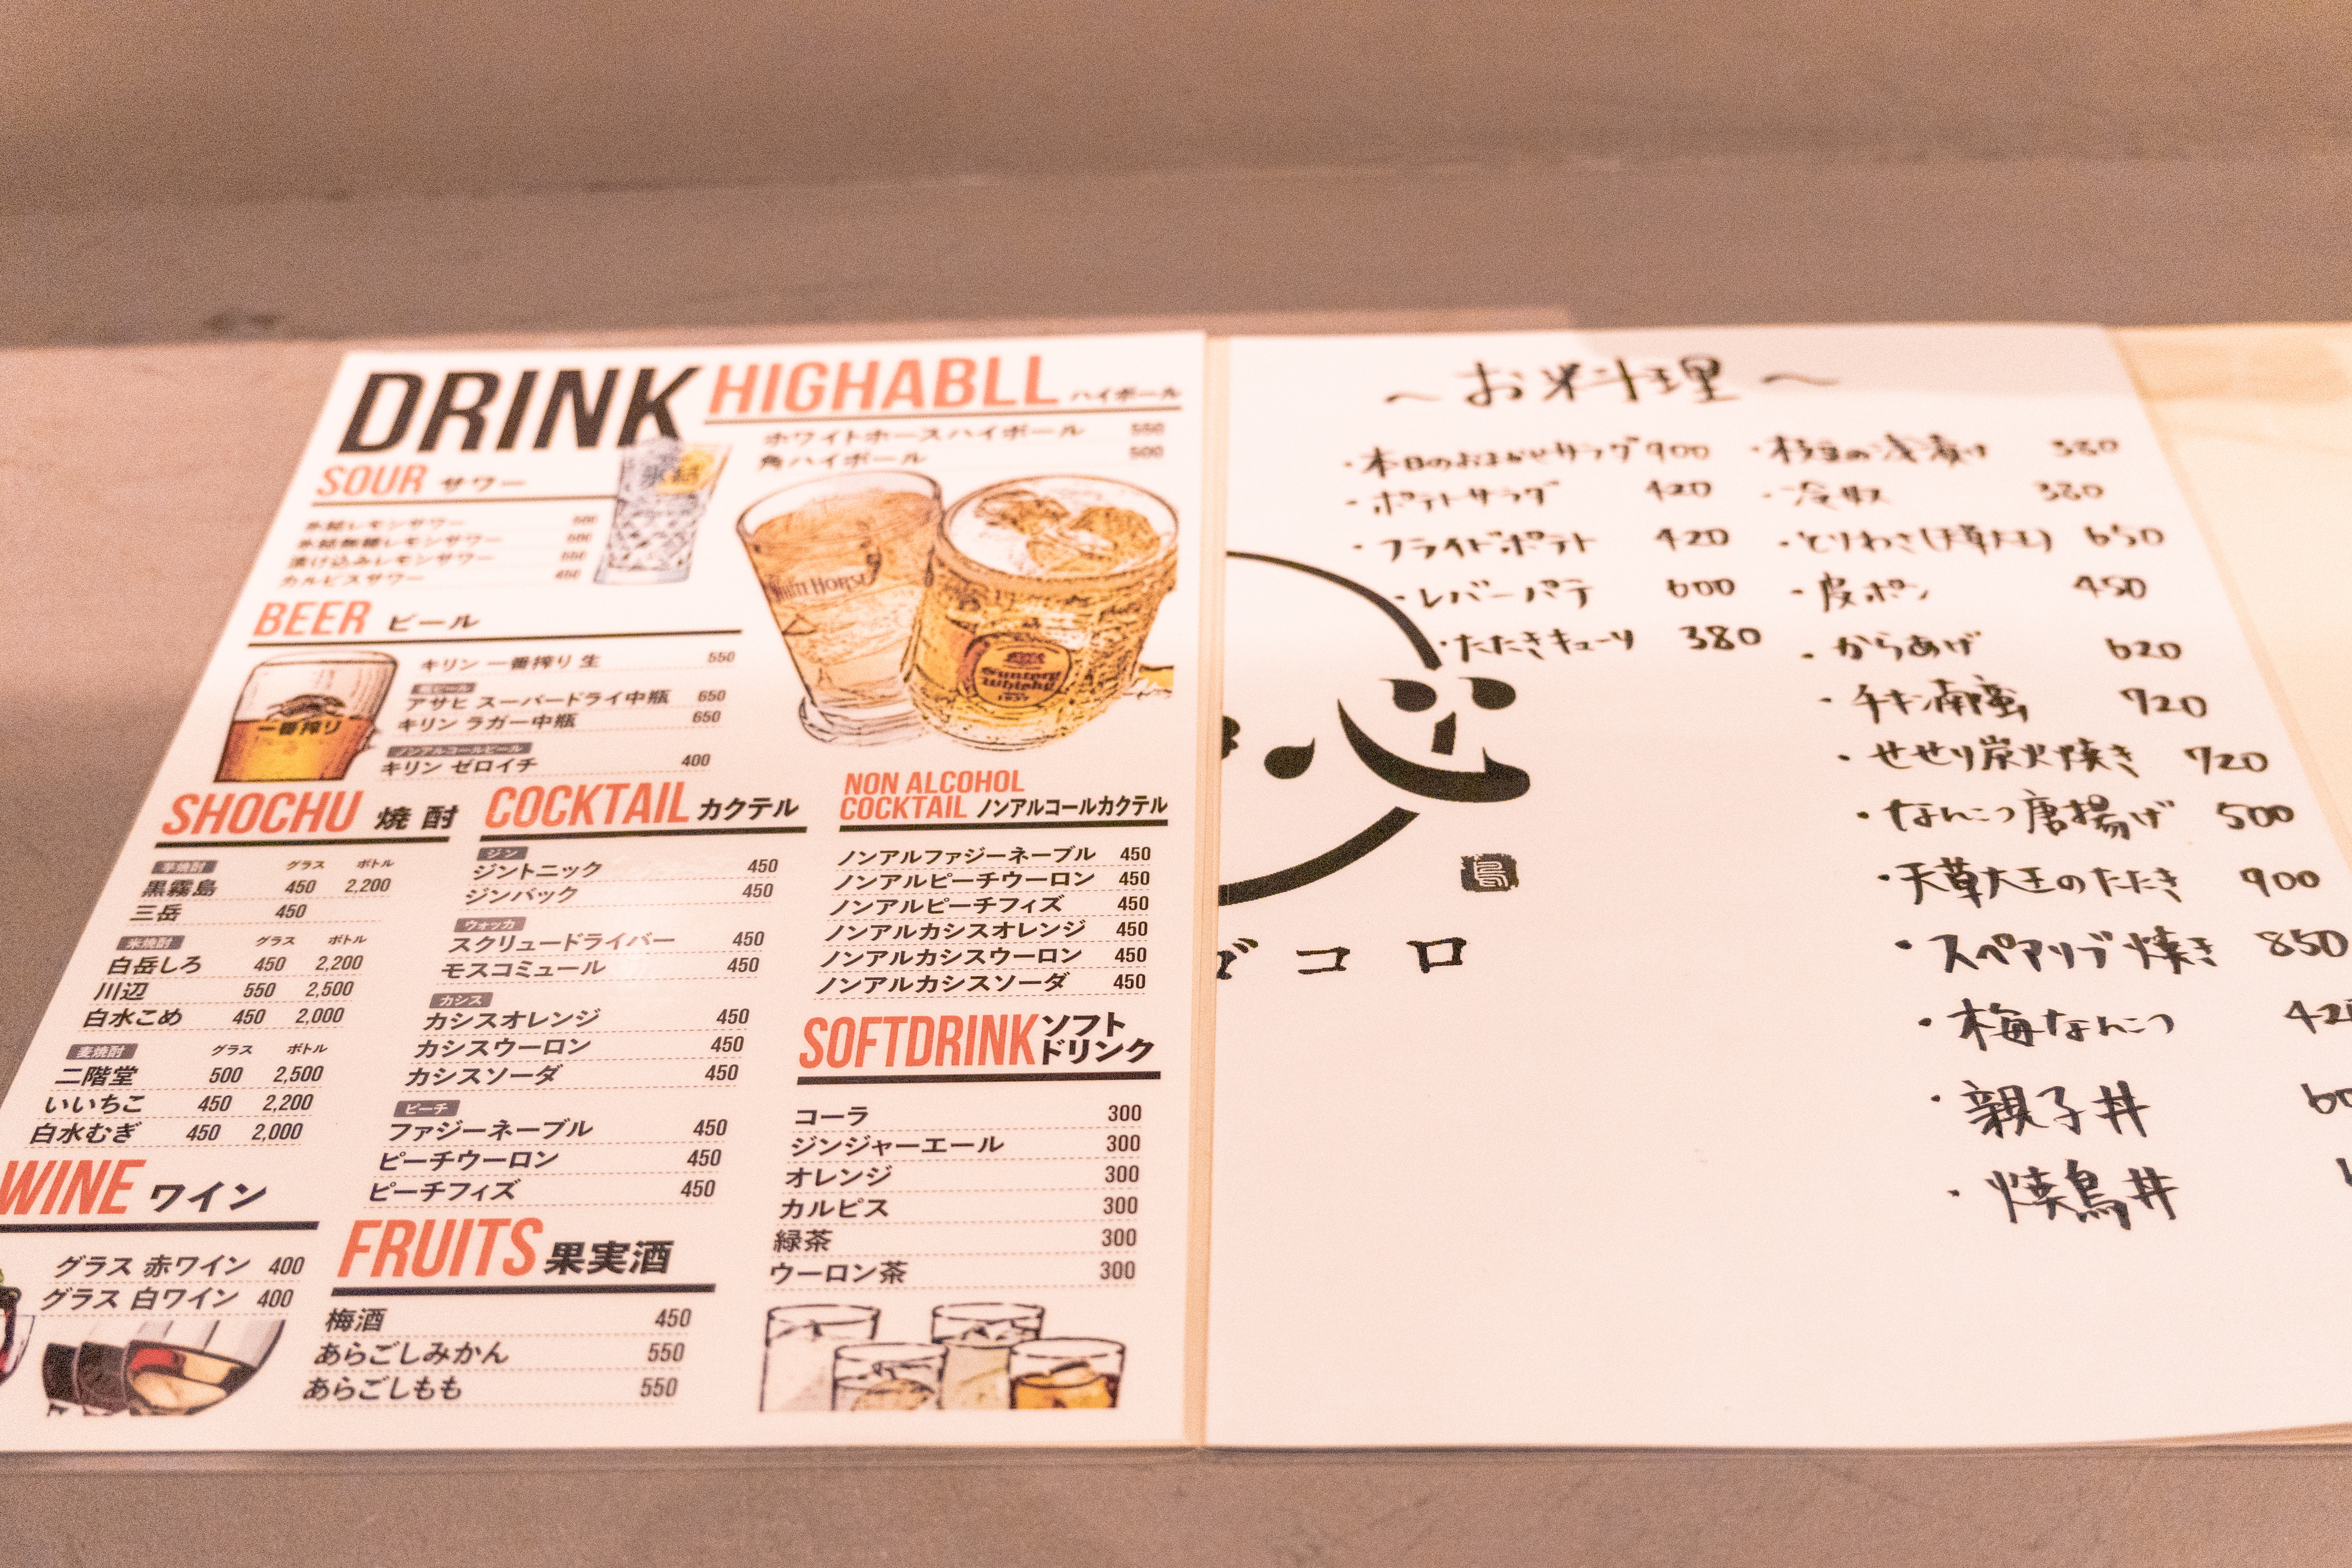 DRINK
SOUR サワー
氷結レモンサワー 500
氷結無糖レモンサワー 500
漬け込みレモンサワー 550
カルピスサワー 450
HIGHABLL ハイボール
ホワイトホースハイボール 550
角ハイボール 500
WHITE HORSE
Suntory
Whisky
1937
BEER ビール
一番搾り
キリン 一番搾り 生 550
瓶ビール
アサヒ スーパードライ中瓶 650
キリン ラガー中瓶 650
ノンアルコールビール
キリン ゼロイチ 400
SHOCHU 焼酎
芋焼酎 グラス ボトル
黒霧島 450 2,200
三岳 450
米焼酎 グラス ボトル
白岳しろ 450 2,200
川辺 550 2,500
白水こめ 450 2,000
麦焼酎 グラス ボトル
二階堂 500 2,500
いいちこ 450 2,200
白水むぎ 450 2,000
WINE ワイン
グラス 赤ワイン 400
グラス 白ワイン 400
COCKTAIL カクテル
ジン
ジントニック 450
ジンバック 450
ウォッカ
スクリュードライバー 450
モスコミュール 450
カシス
カシスオレンジ 450
カシスウーロン 450
カシスソーダ 450
ピーチ
ファジーネーブル 450
ピーチウーロン 450
ピーチフィズ 450
FRUITS 果実酒
梅酒 450
あらごしみかん 550
あらごしもも 550
NON ALCOHOL
COCKTAIL ノンアルコールカクテル
ノンアルファジーネーブル 450
ノンアルピーチウーロン 450
ノンアルピーチフィズ 450
ノンアルカシスオレンジ 450
ノンアルカシスウーロン 450
ノンアルカシスソーダ 450
SOFTDRINK ソフト
ドリンク
コーラ 300
ジンジャーエール 300
オレンジ 300
カルピス 300
緑茶 300
ウーロン茶 300
〜お料理〜
・本日のおまかせサラダ 900
・ポテトサラダ 420
・フライドポテト 420
・レバーパテ 600
・たたきキューリ 380
・枝豆の浅漬け 380
・冷奴 380
・とりわさ(天草大王) 650
・皮ポン 450
・からあげ 620
・チキン南蛮 720
・せせり炭火焼き 720
・なんこつ唐揚げ 500
・天草大王のたたき 900
・スペアリブ焼き 850
・梅なんこつ 420
・親子丼
・焼鳥丼
コロ